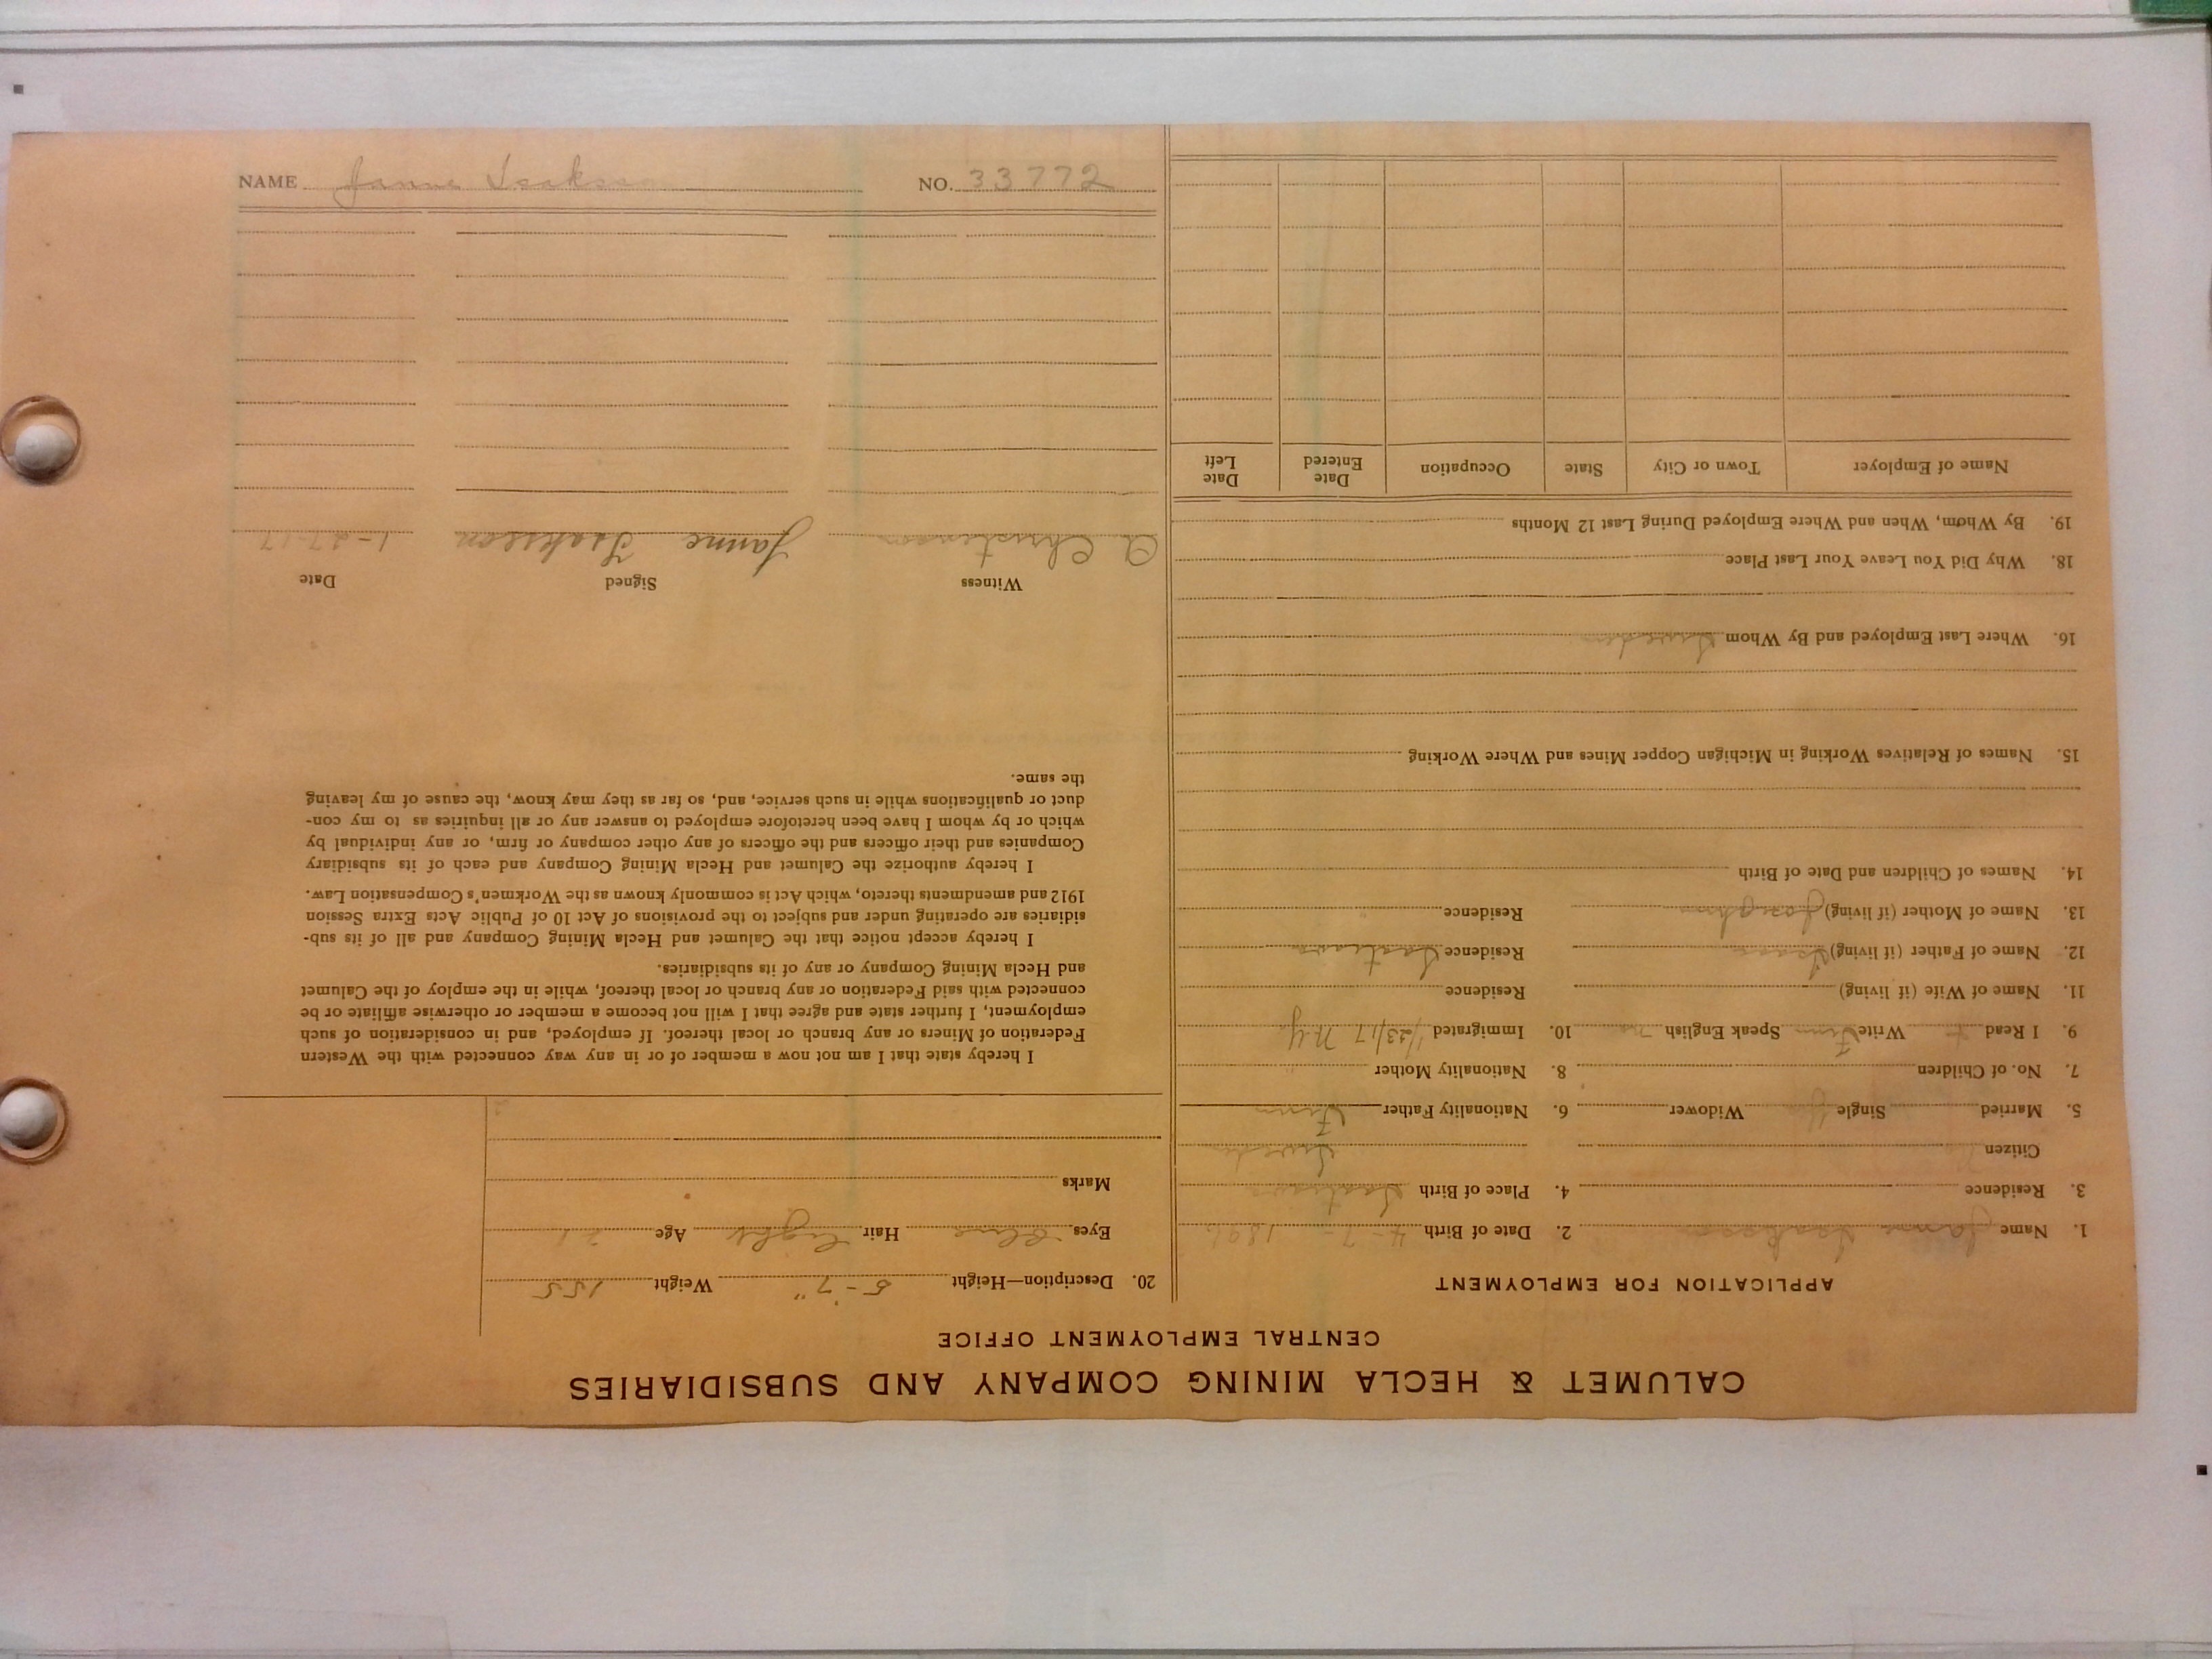 CALUMET & HECLA MINING COMPANY AND SUBSIDIARIES
CENTRAL EMPLOYMENT OFFICE
APPLICATION FOR EMPLOYMENT
1. Name Janne Isaksson 2. Date of Birth 4-7-1896
3. Residence 4. Place of Birth
Citizen Sweden
5. Married Single Widower 6. Nationality Father Finn
7. No. of Children 8. Nationality Mother
9. I Read Write Finn Speak English no 10. Immigrated 1/23/17 N.Y.
11. Name of Wife (if living) Residence
12. Name of Father (if living) Isaac Residence
13. Name of Mother (if living) Residence "
14. Names of Children and Date of Birth
15. Names of Relatives Working in Michigan Copper Mines and Where Working
16. Where Last Employed and By Whom Sweden
18. Why Did You Leave Your Last Place
19. By Whom, When and Where Employed During Last 12 Months
Name of Employer Town or City State Occupation Date Entered Date Left
20. Description—Height 5-7" Weight 155
Eyes Blue Hair Light Age 21
Marks
I hereby state that I am not now a member of or in any way connected with the Western
Federation of Miners or any branch or local thereof. If employed, and in consideration of such
employment, I further state and agree that I will not become a member or otherwise affiliate or be
connected with said Federation or any branch or local thereof, while in the employ of the Calumet
and Hecla Mining Company or any of its subsidiaries.
I hereby accept notice that the Calumet and Hecla Mining Company and all of its sub-
sidiaries are operating under and subject to the provisions of Act 10 of Public Acts Extra Session
1912 and amendments thereto, which Act is commonly known as the Workmen's Compensation Law.
I hereby authorize the Calumet and Hecla Mining Company and each of its subsidiary
Companies and their officers and the officers of any other company or firm, or any individual by
which or by whom I have been heretofore employed to answer any or all inquiries as to my con-
duct or qualifications while in such service, and, so far as they may know, the cause of my leaving
the same.
Witness Signed Date
A Christenson Janne Isaksson 1-27-17
NAME Janne Isaksson NO. 33772